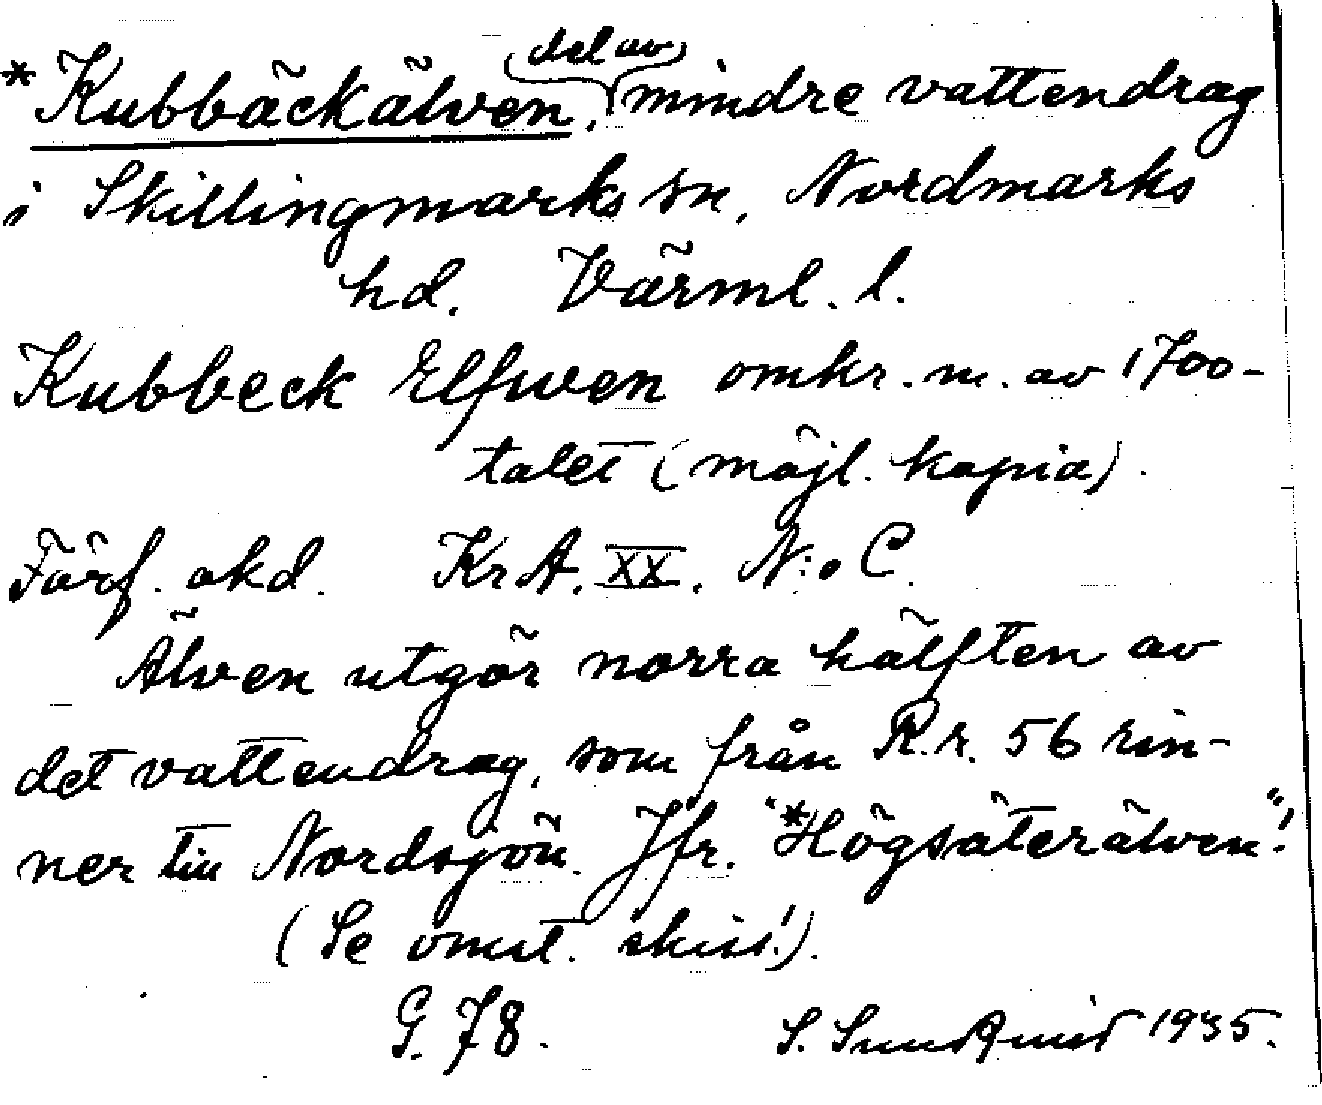 *Kubbäckälven, del av mindre vattendrag
i Skillingmarks sn, Nordmarks
hd. Värml. l.
Kubbeck Elfwen omkr. m. av 1700-
talet (möjl. kopia).
Förf. okd. KrA. XX. N:o C.
Älven utgör norra hälften av
det vattendrag, som från R.r. 56 rin-
ner till Nordsjön. Jfr. "*Högsäterälven"!
(Se omst. skiss!).
G. 78. S. Sundquist 1935.